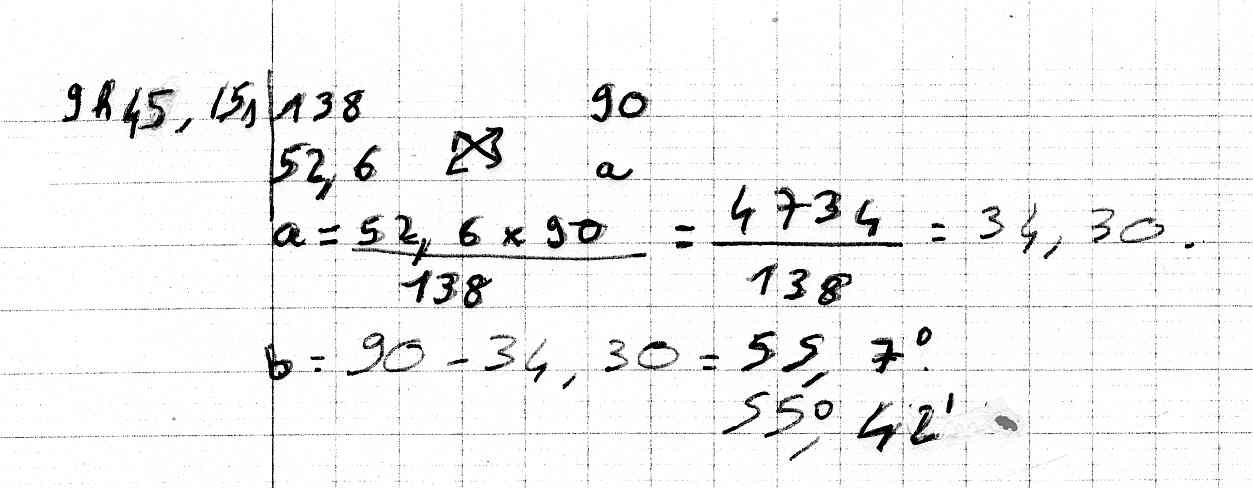 9h45, 15s 138 90
52,6 a
a = 52,6 x 90 / 138 = 4734 / 138 = 34,30.
b = 90 - 34,30 = 55,7°.
55°, 42'